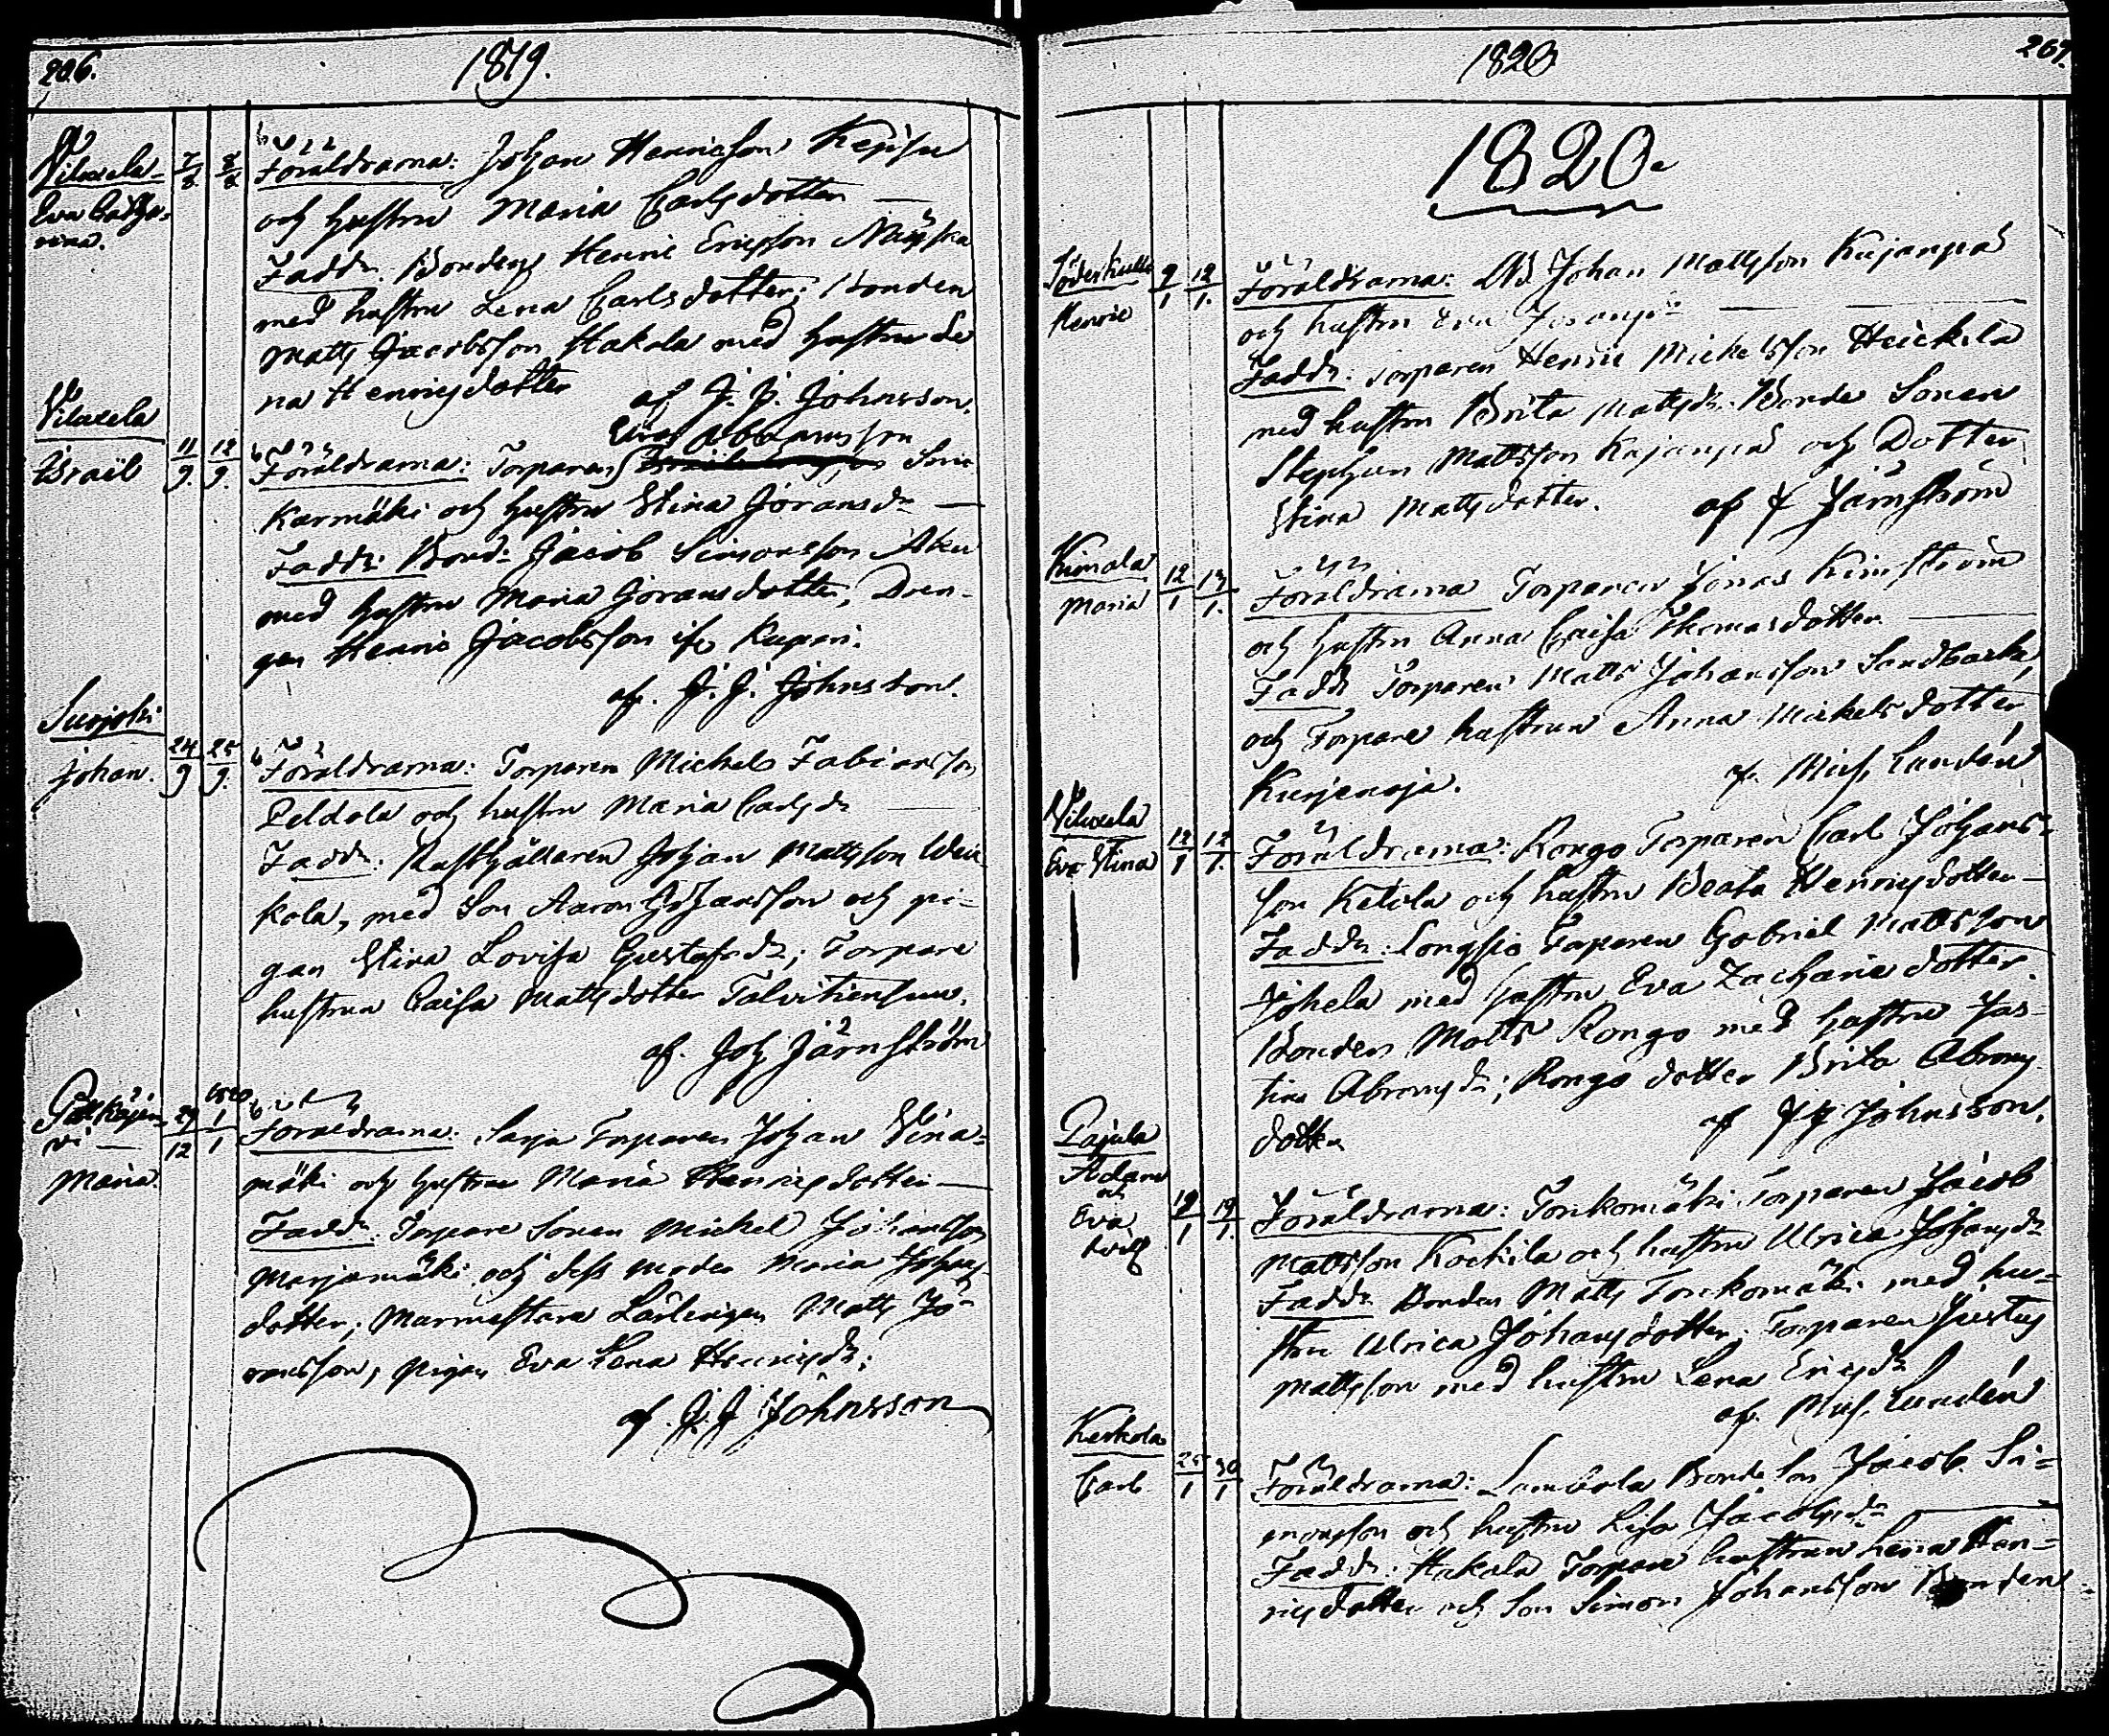 206.
1819.
Vilucela
Eva Catha-
rina.
7/8 8/8
Föräldrarna: Johan Henricsson
och hustru Maria Carlsdotter
Fadd: Bonden Henric Ericsson
med hustru Lena Carlsdotter; Bonden
Matts Jacobsson Hakola med hustru Le
na Henricsdotter
af J. J. Johnsson.
Vilucela
Israël
11/9. 12/9.
Elias Abramsson
Föräldrarna: Torparen
Karmäki och hustru Stina Göransdr
Fadd: Bond: Jacob Simonsson
med hustru Maria Göransdotter, Dren-
gen Henric Jacobsson
af. J. J. Johnsson.
Suojoki
Johan.
24/9 25/9.
Föräldrarna: Torparen Michel Fabiansson
Peldola och hustru Maria Carlsdr
Fadd: Rusthållaren Johan Mattsson Wei-
kola, med Son Aaron Johansson och pi-
gan Stina Lovisa Gustafsdr; Torpare
hustrun Caisa Mattsdotter Talvitiensuu.
af. Joh Järnström
Pitkäjer-
vi
Maria.
29/12 1820 1/1
Föräldrarna: Sarja Torparen Johan Vina-
mäki och hustru Maria Henricsdotter
Fadd: Torpare Sonen Michel Johansson
Marjamäki och dess moder Maria Johans-
dotter; Murmestare Lärlingen Matts Jö-
ransson, pigan Eva Lena Henricsdr;
af. J. J. Johnsson
1820
267.
1820.
Söderkulla
Henric
9/1 12/1.
Föräldrarna: Johan Mattsson Kujanpä
och hustru Eva
Fadd: Torparen Henric Mickelsson Heickilä
med hustru Brita Mattsdr. Bonde Sonen
Stephan Mattsson Kujanpä och Dotter
Stina Mattsdotter.
af J Järnström
Kimala
Maria
12/1 13/1.
Föräldrarna Torparen Jonas Kimström
och hustru Anna Caisa Thomasdotter
Fadd Torparen Matts Johansson Sandbacka,
och Torpare hustrun Anna Mickelsdotter
Kurjenoja.
af. Mich. Lundén
Vilucela
Eva Stina
12/1 12/1.
Föräldrarna: Rongo Torparen Carl Johans-
son Ketola och hustru Beata Henricsdotter
Fadd: Torparen Gabriel Mattsson
med hustru Eva Zacharie dotter.
Bonden Matts Rongo med hustru Jus-
tina Abramsdr; Rongo dotter Brita Abrams
dotter
af J J Johnsson.
Pajula
Adam
och
Eva
tvill
19/1 19/1.
Föräldrarna: Tonkomäki Torparen Jacob
Mattsson Kockila och hustru Ulrica Johansdr
Fadd: Bonden Matts Tonkomäki med hu-
stru Ulrica Johansdotter; Torparen Justus
Mattsson med hustru Lena Ericsdr
af. Mich. Lundén
Keskola
Carl.
25/1 30/1
Föräldrarna: Lambola Bonde Son Jacob Si-
monsson och hustru Lisa Jacobsdr
Fadd: Hakola Torpare hustrun Lena Hen-
ricsdotter och Son Simon Johansson Bonden